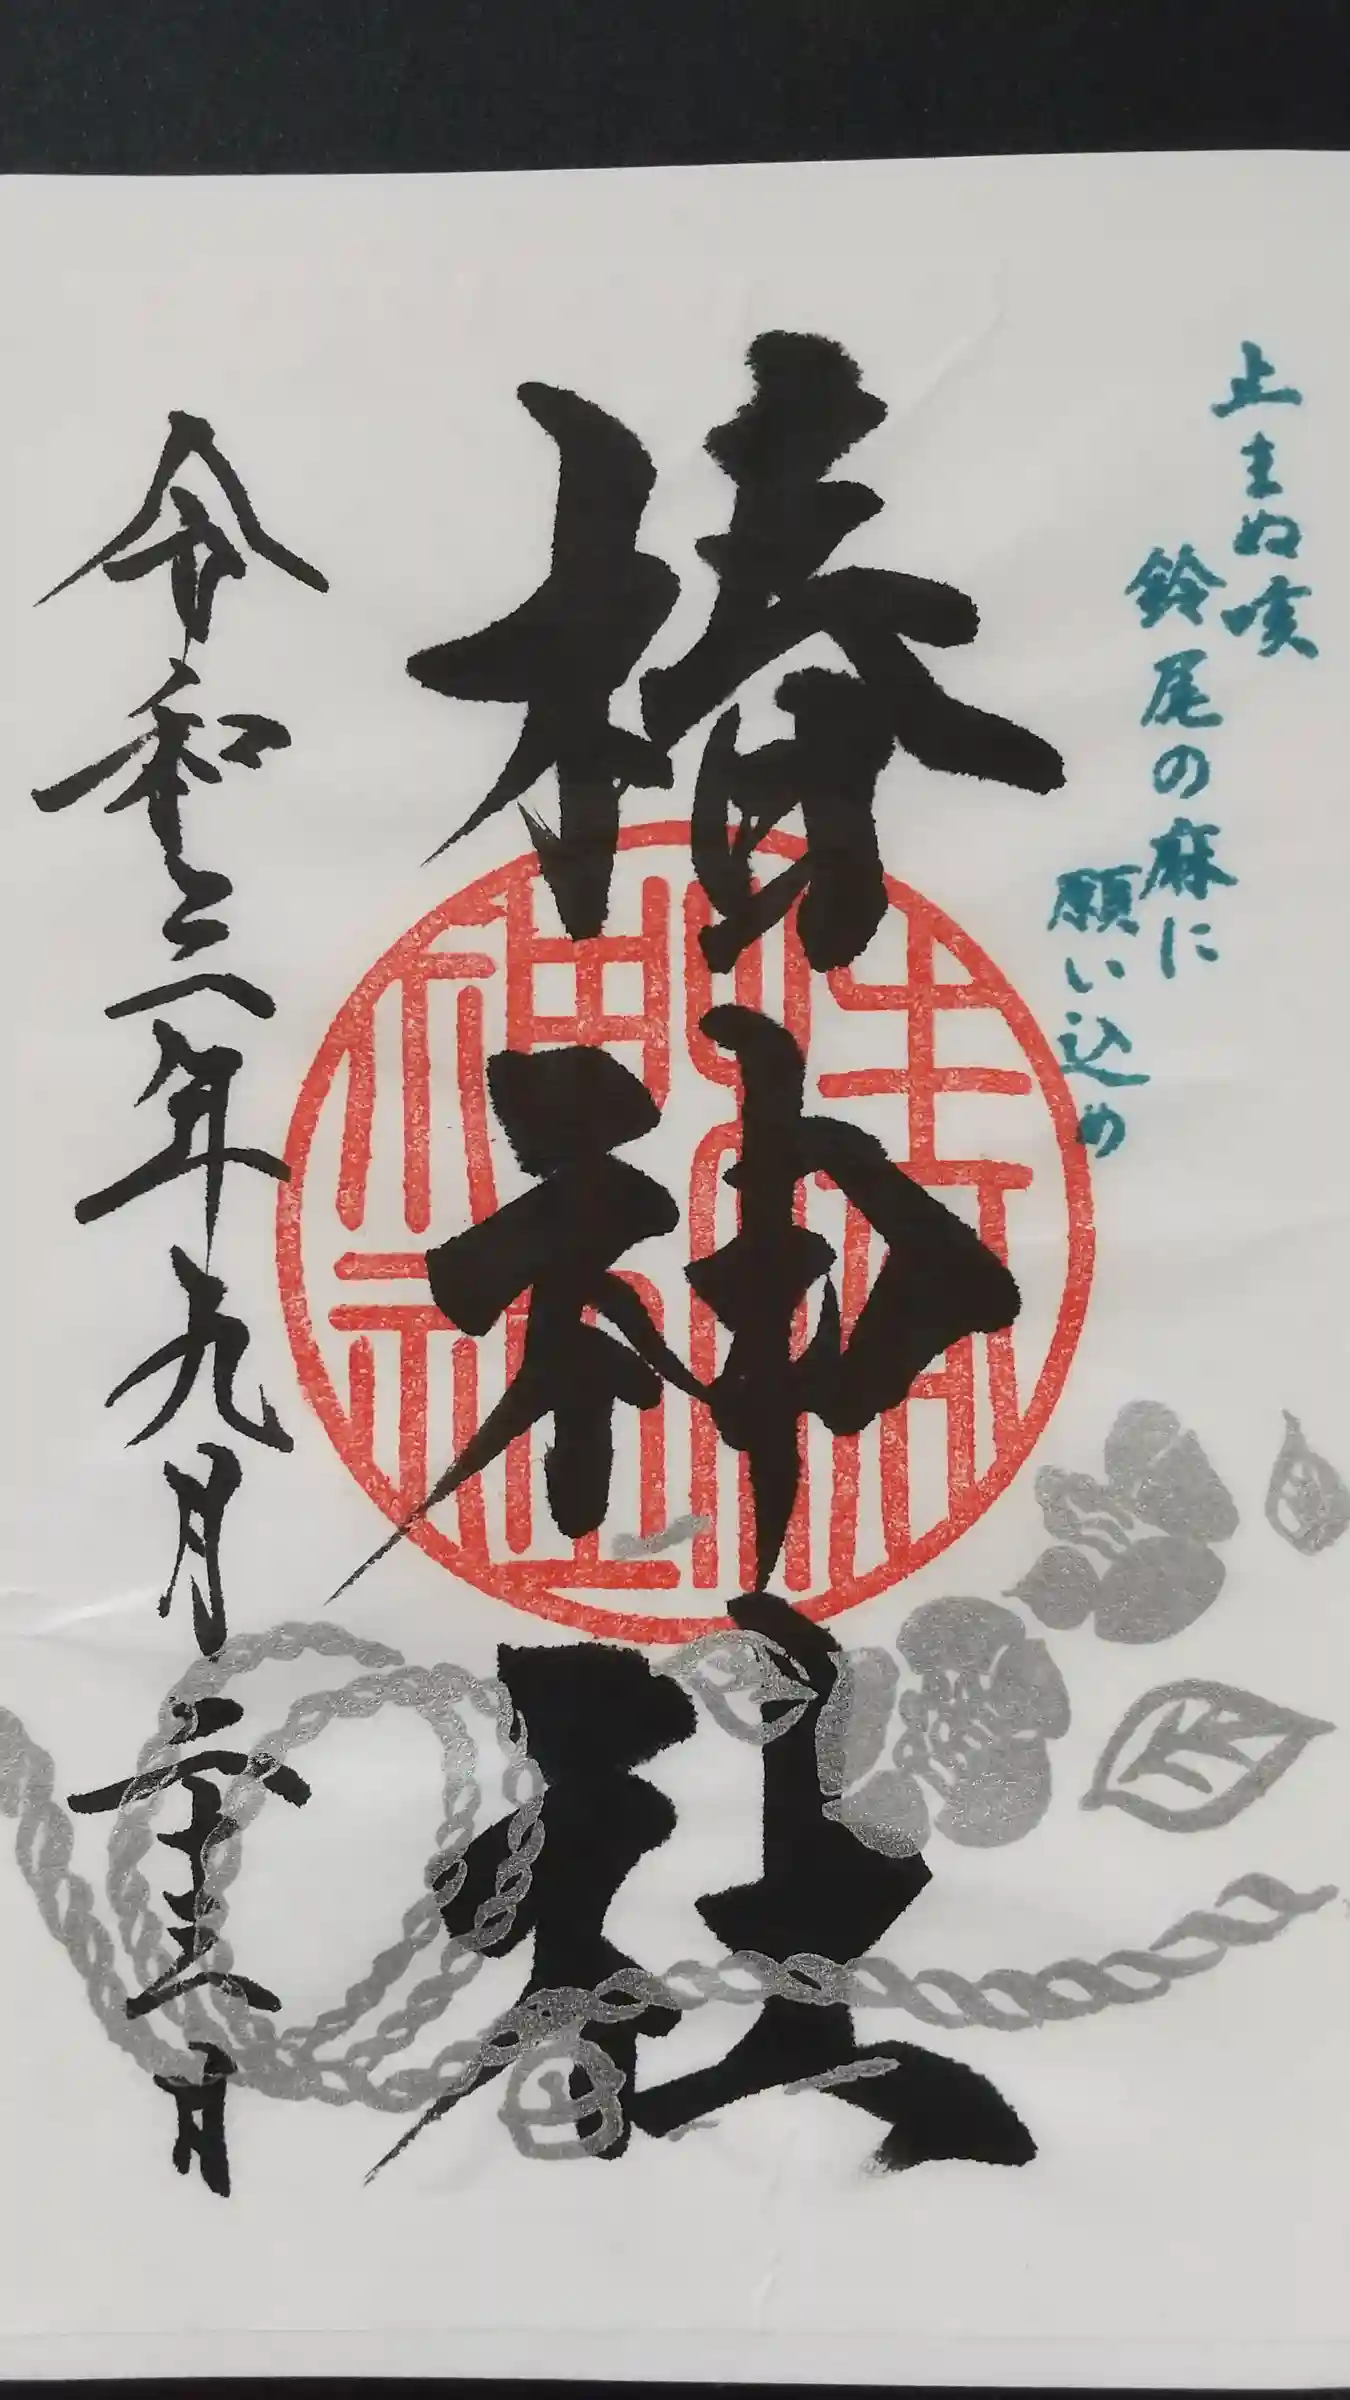 止まぬ咳
鈴尾の麻に
願い込め
椿神社
令和二年九月二十三日